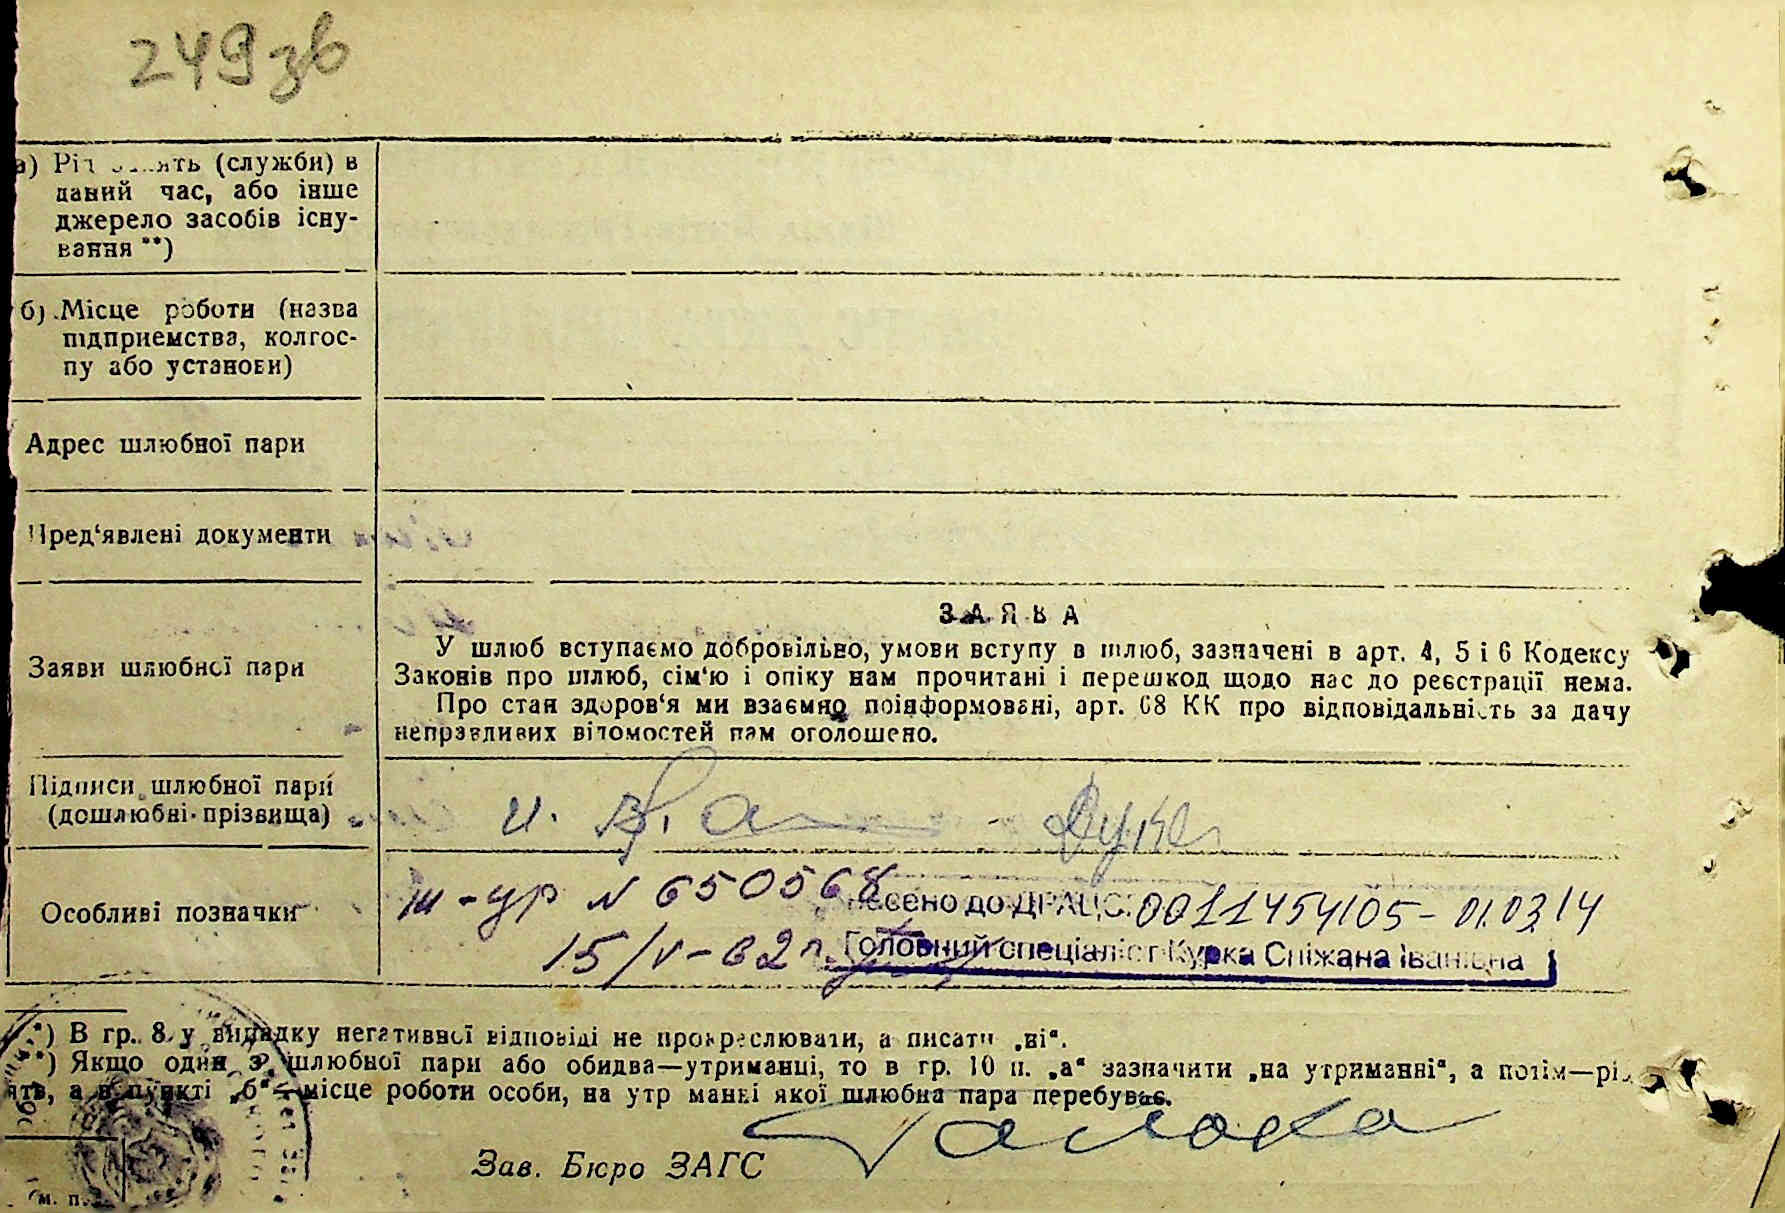 249 зв
а) Рід занять (служби) в
даний час, або інше
джерело засобів існу-
вання **)
б) Місце роботи (назва
підприємства, колгос-
пу або установи)
Адрес шлюбної пари
Пред‘явлені документи
Заяви шлюбної пари
ЗАЯВА
У шлюб вступаємо добровільно, умови вступу в шлюб, зазначені в арт. 4, 5 і 6 Кодексу
Законів про шлюб, сім‘ю і опіку нам прочитані і перешкод щодо нас до реєстрації нема.
Про стан здоров‘я ми взаємно поінформовані, арт. 68 КК про відповідальність за дачу
неправдивих відомостей нам оголошено.
Підписи шлюбної пари
(дошлюбні прізвища)
Особливі позначки
ш-ур N 650568
внесено до ДРАЦС: 0011454105 - 01.03.14
15/V-62 р.
Головний спеціаліст Курка Сніжана Іванівна
*) В гр. 8 у випадку негативної відповіді не прокреслювати, а писати „ні“.
**) Якщо один з шлюбної пари або обидва—утриманці, то в гр. 10 п. „а“ зазначити „на утриманні“, а потім—рід
нять, а в пункті „б“—місце роботи особи, на утриманні якої шлюбна пара перебуває.
Зав. Бюро ЗАГС
м. п.